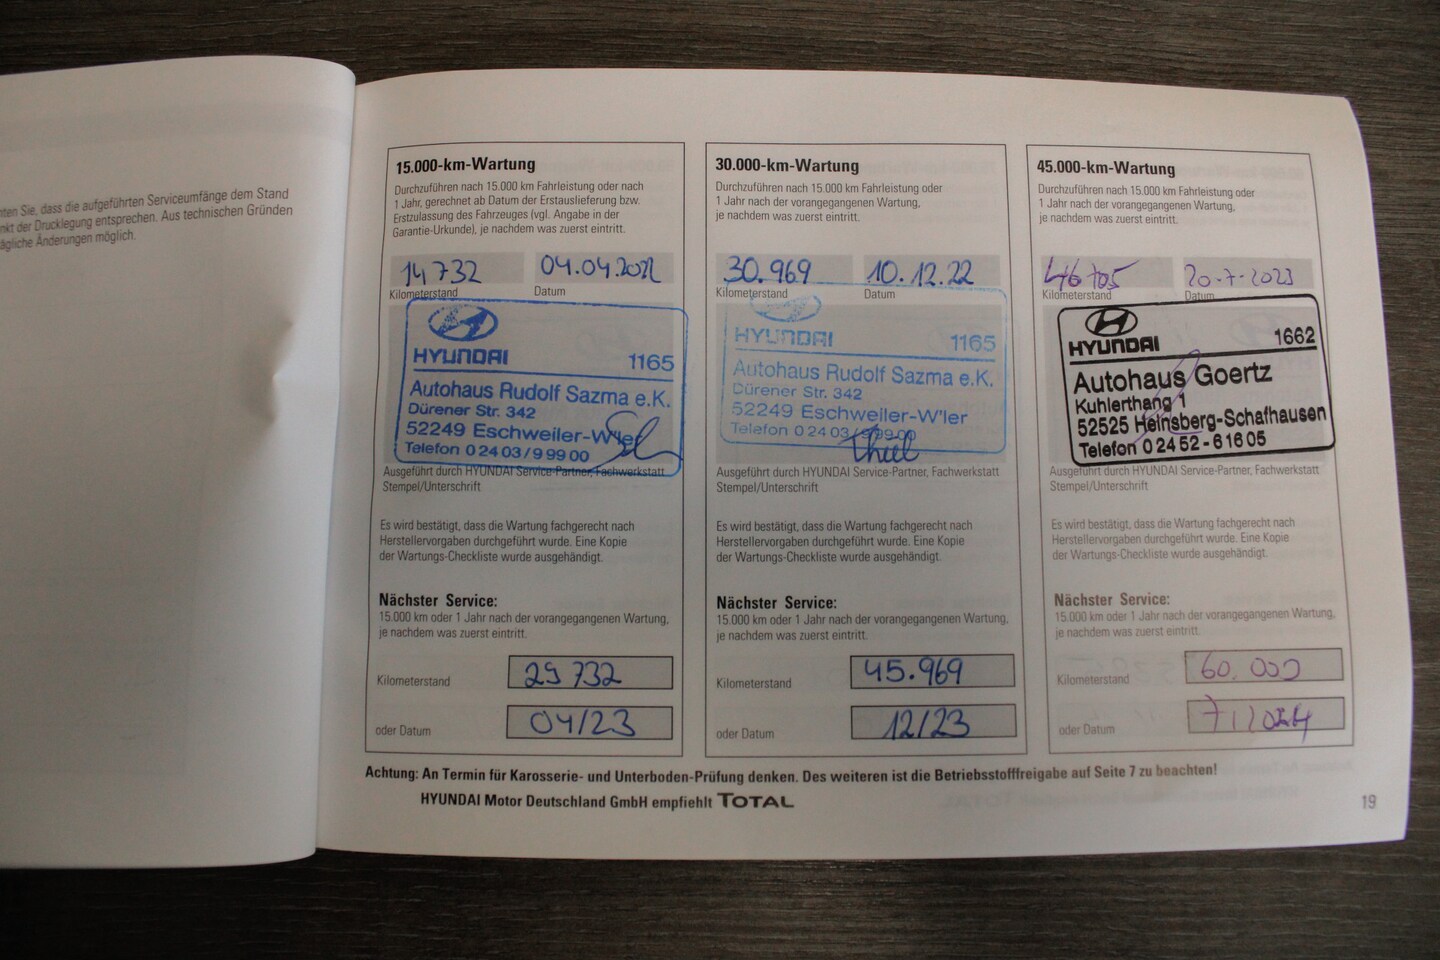 nten Sie, dass die aufgeführten Serviceumfänge dem Stand
nkt der Drucklegung entsprechen. Aus technischen Gründen
ägliche Änderungen möglich.
15.000-km-Wartung
Durchzuführen nach 15.000 km Fahrleistung oder nach
1 Jahr, gerechnet ab Datum der Erstauslieferung bzw.
Erstzulassung des Fahrzeuges (vgl. Angabe in der
Garantie-Urkunde), je nachdem was zuerst eintritt.
14 732 04.04.2022
Kilometerstand Datum
HYUNDAI 1165
Autohaus Rudolf Sazma e.K.
Dürener Str. 342
52249 Eschweiler-W'ler
Telefon 0 24 03 / 9 99 00
Ausgeführt durch HYUNDAI Service-Partner, Fachwerkstatt
Stempel/Unterschrift
Es wird bestätigt, dass die Wartung fachgerecht nach
Herstellervorgaben durchgeführt wurde. Eine Kopie
der Wartungs-Checkliste wurde ausgehändigt.
Nächster Service:
15.000 km oder 1 Jahr nach der vorangegangenen Wartung,
je nachdem was zuerst eintritt.
Kilometerstand 29 732
oder Datum 04/23
30.000-km-Wartung
Durchzuführen nach 15.000 km Fahrleistung oder
1 Jahr nach der vorangegangenen Wartung,
je nachdem was zuerst eintritt.
30.969 10.12.22
Kilometerstand Datum
HYUNDAI 1165
Autohaus Rudolf Sazma e.K.
Dürener Str. 342
52249 Eschweiler-W'ler
Telefon 0 24 03 / 9 99 00
Thiel
Ausgeführt durch HYUNDAI Service-Partner, Fachwerkstatt
Stempel/Unterschrift
Es wird bestätigt, dass die Wartung fachgerecht nach
Herstellervorgaben durchgeführt wurde. Eine Kopie
der Wartungs-Checkliste wurde ausgehändigt.
Nächster Service:
15.000 km oder 1 Jahr nach der vorangegangenen Wartung,
je nachdem was zuerst eintritt.
Kilometerstand 45.969
oder Datum 12/23
45.000-km-Wartung
Durchzuführen nach 15.000 km Fahrleistung oder
1 Jahr nach der vorangegangenen Wartung,
je nachdem was zuerst eintritt.
46 705 20-7-2023
Kilometerstand Datum
HYUNDAI 1662
Autohaus Goertz
Kuhlerthang 1
52525 Heinsberg-Schafhausen
Telefon 0 24 52 - 6 16 05
Ausgeführt durch HYUNDAI Service-Partner, Fachwerkstatt
Stempel/Unterschrift
Es wird bestätigt, dass die Wartung fachgerecht nach
Herstellervorgaben durchgeführt wurde. Eine Kopie
der Wartungs-Checkliste wurde ausgehändigt.
Nächster Service:
15.000 km oder 1 Jahr nach der vorangegangenen Wartung,
je nachdem was zuerst eintritt.
Kilometerstand 60.000
oder Datum 7/2024
Achtung: An Termin für Karosserie- und Unterboden-Prüfung denken. Des weiteren ist die Betriebsstofffreigabe auf Seite 7 zu beachten!
HYUNDAI Motor Deutschland GmbH empfiehlt TOTAL
19